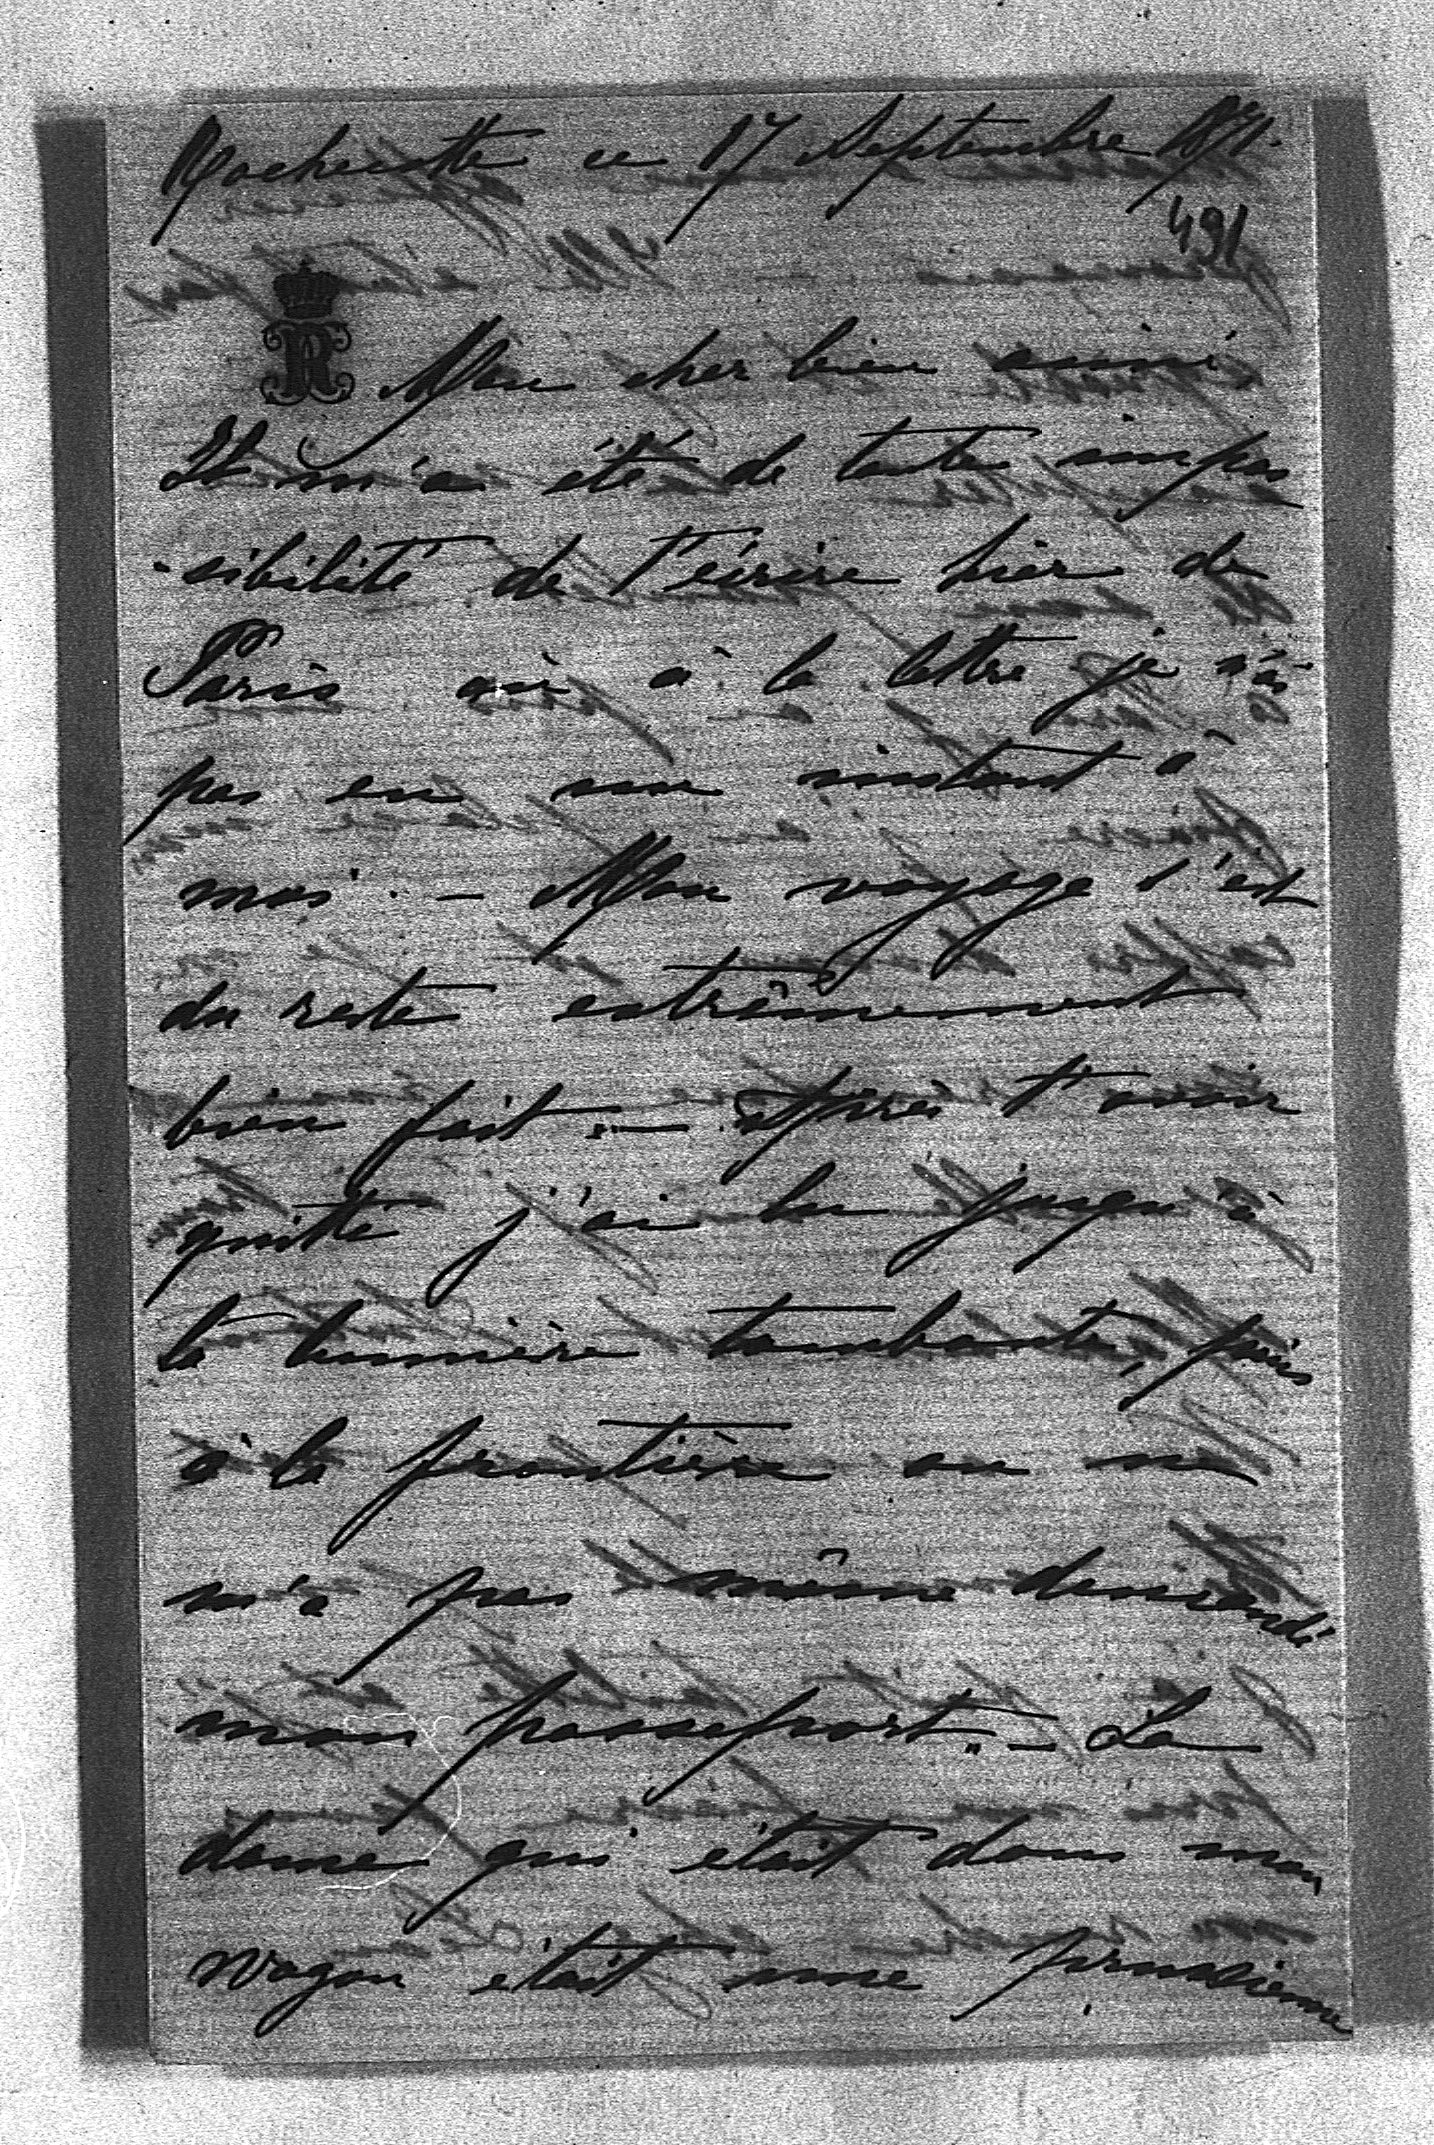 Rochecotte ce 17 Septembre 1871.
491
R
Mon cher bien aimé,
Il m'a été de toute impos
-sibilité de t'écrire hier de
Paris où à la lettre je n'ai
pas eu un instant à
moi. — Mon voyage s'est
du reste extrêmement
bien fait. — Après t'avoir
quitté j'ai lu jusqu'à
la lumière tombante, puis
à la frontière on ne
m'a pas même demandé
mon passeport. — La
dame qui était dans mon
wagon était une prussienne